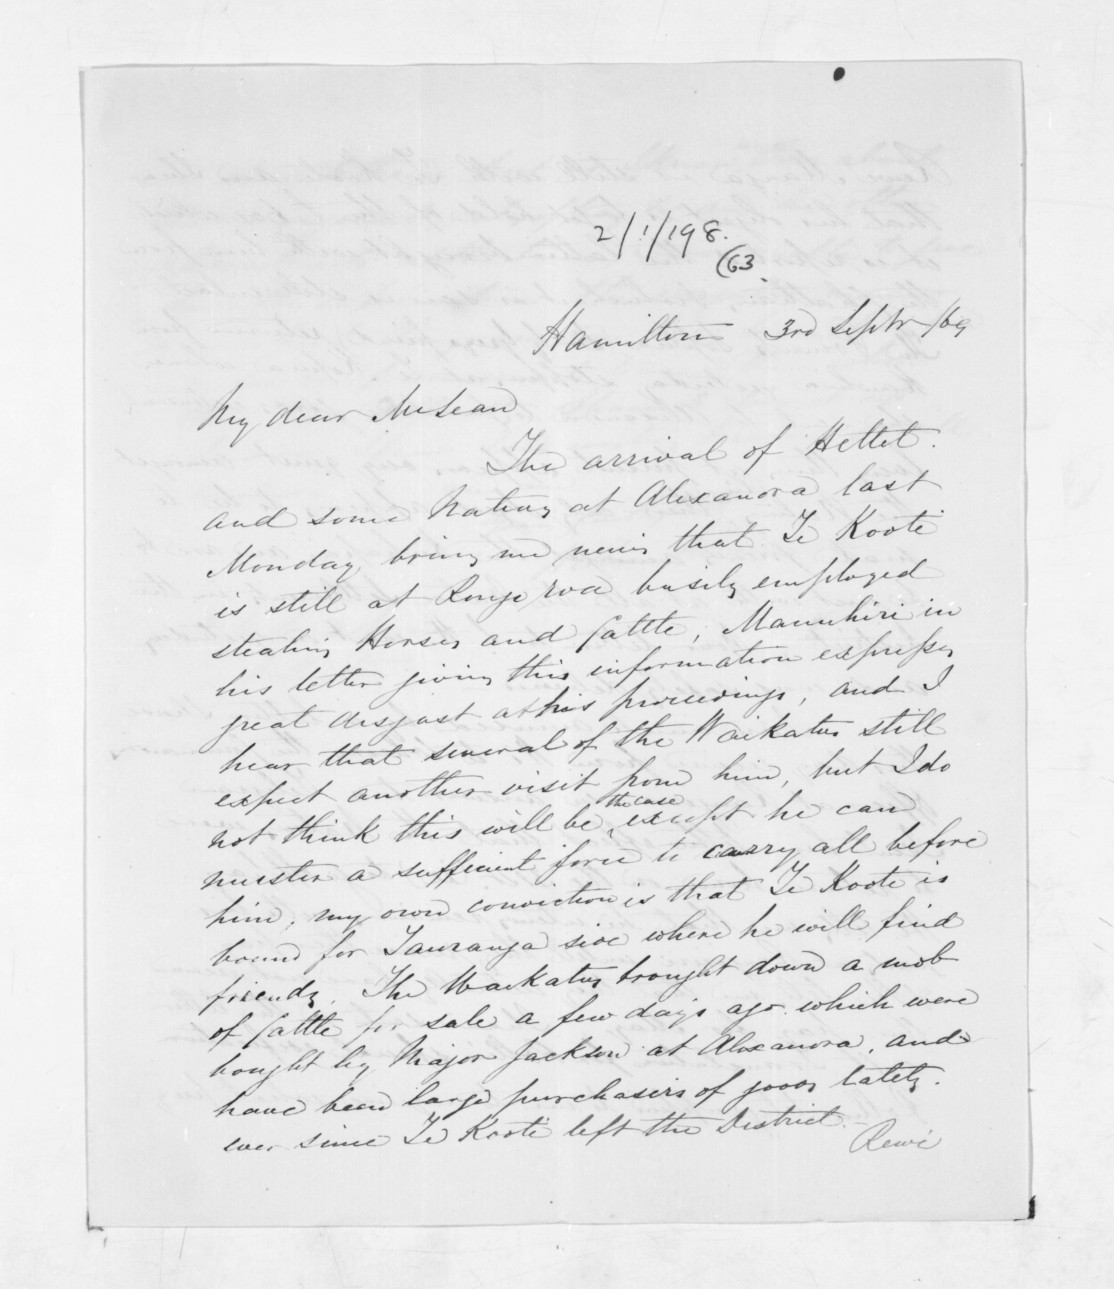 2/1/198.
(63.
Hamilton 3rd Septr /69
My dear McLean
The arrival of Hettet.
and some Natives at Alexandra last
Monday, brings me news that Te Kooti
is still at Ronga roa busily employed
stealing Horses and Cattle, Manuhiri in
his letter giving this information expresses
great disgust at his proceedings, and I
hear that several of the Waikatos still
expect another visit from him, but I do
not think this will be the case except he can
muster a sufficient force to carry all before
him, my own conviction is that Te Kooti is
bound for Tauranga side where he will find
friends. The Waikatos brought down a mob
of Cattle for sale a few days ago which were
bought by Major Jackson at Alexandra, and
have been large purchasers of goods lately.
ever since Te Kooti left the District.
Rewi